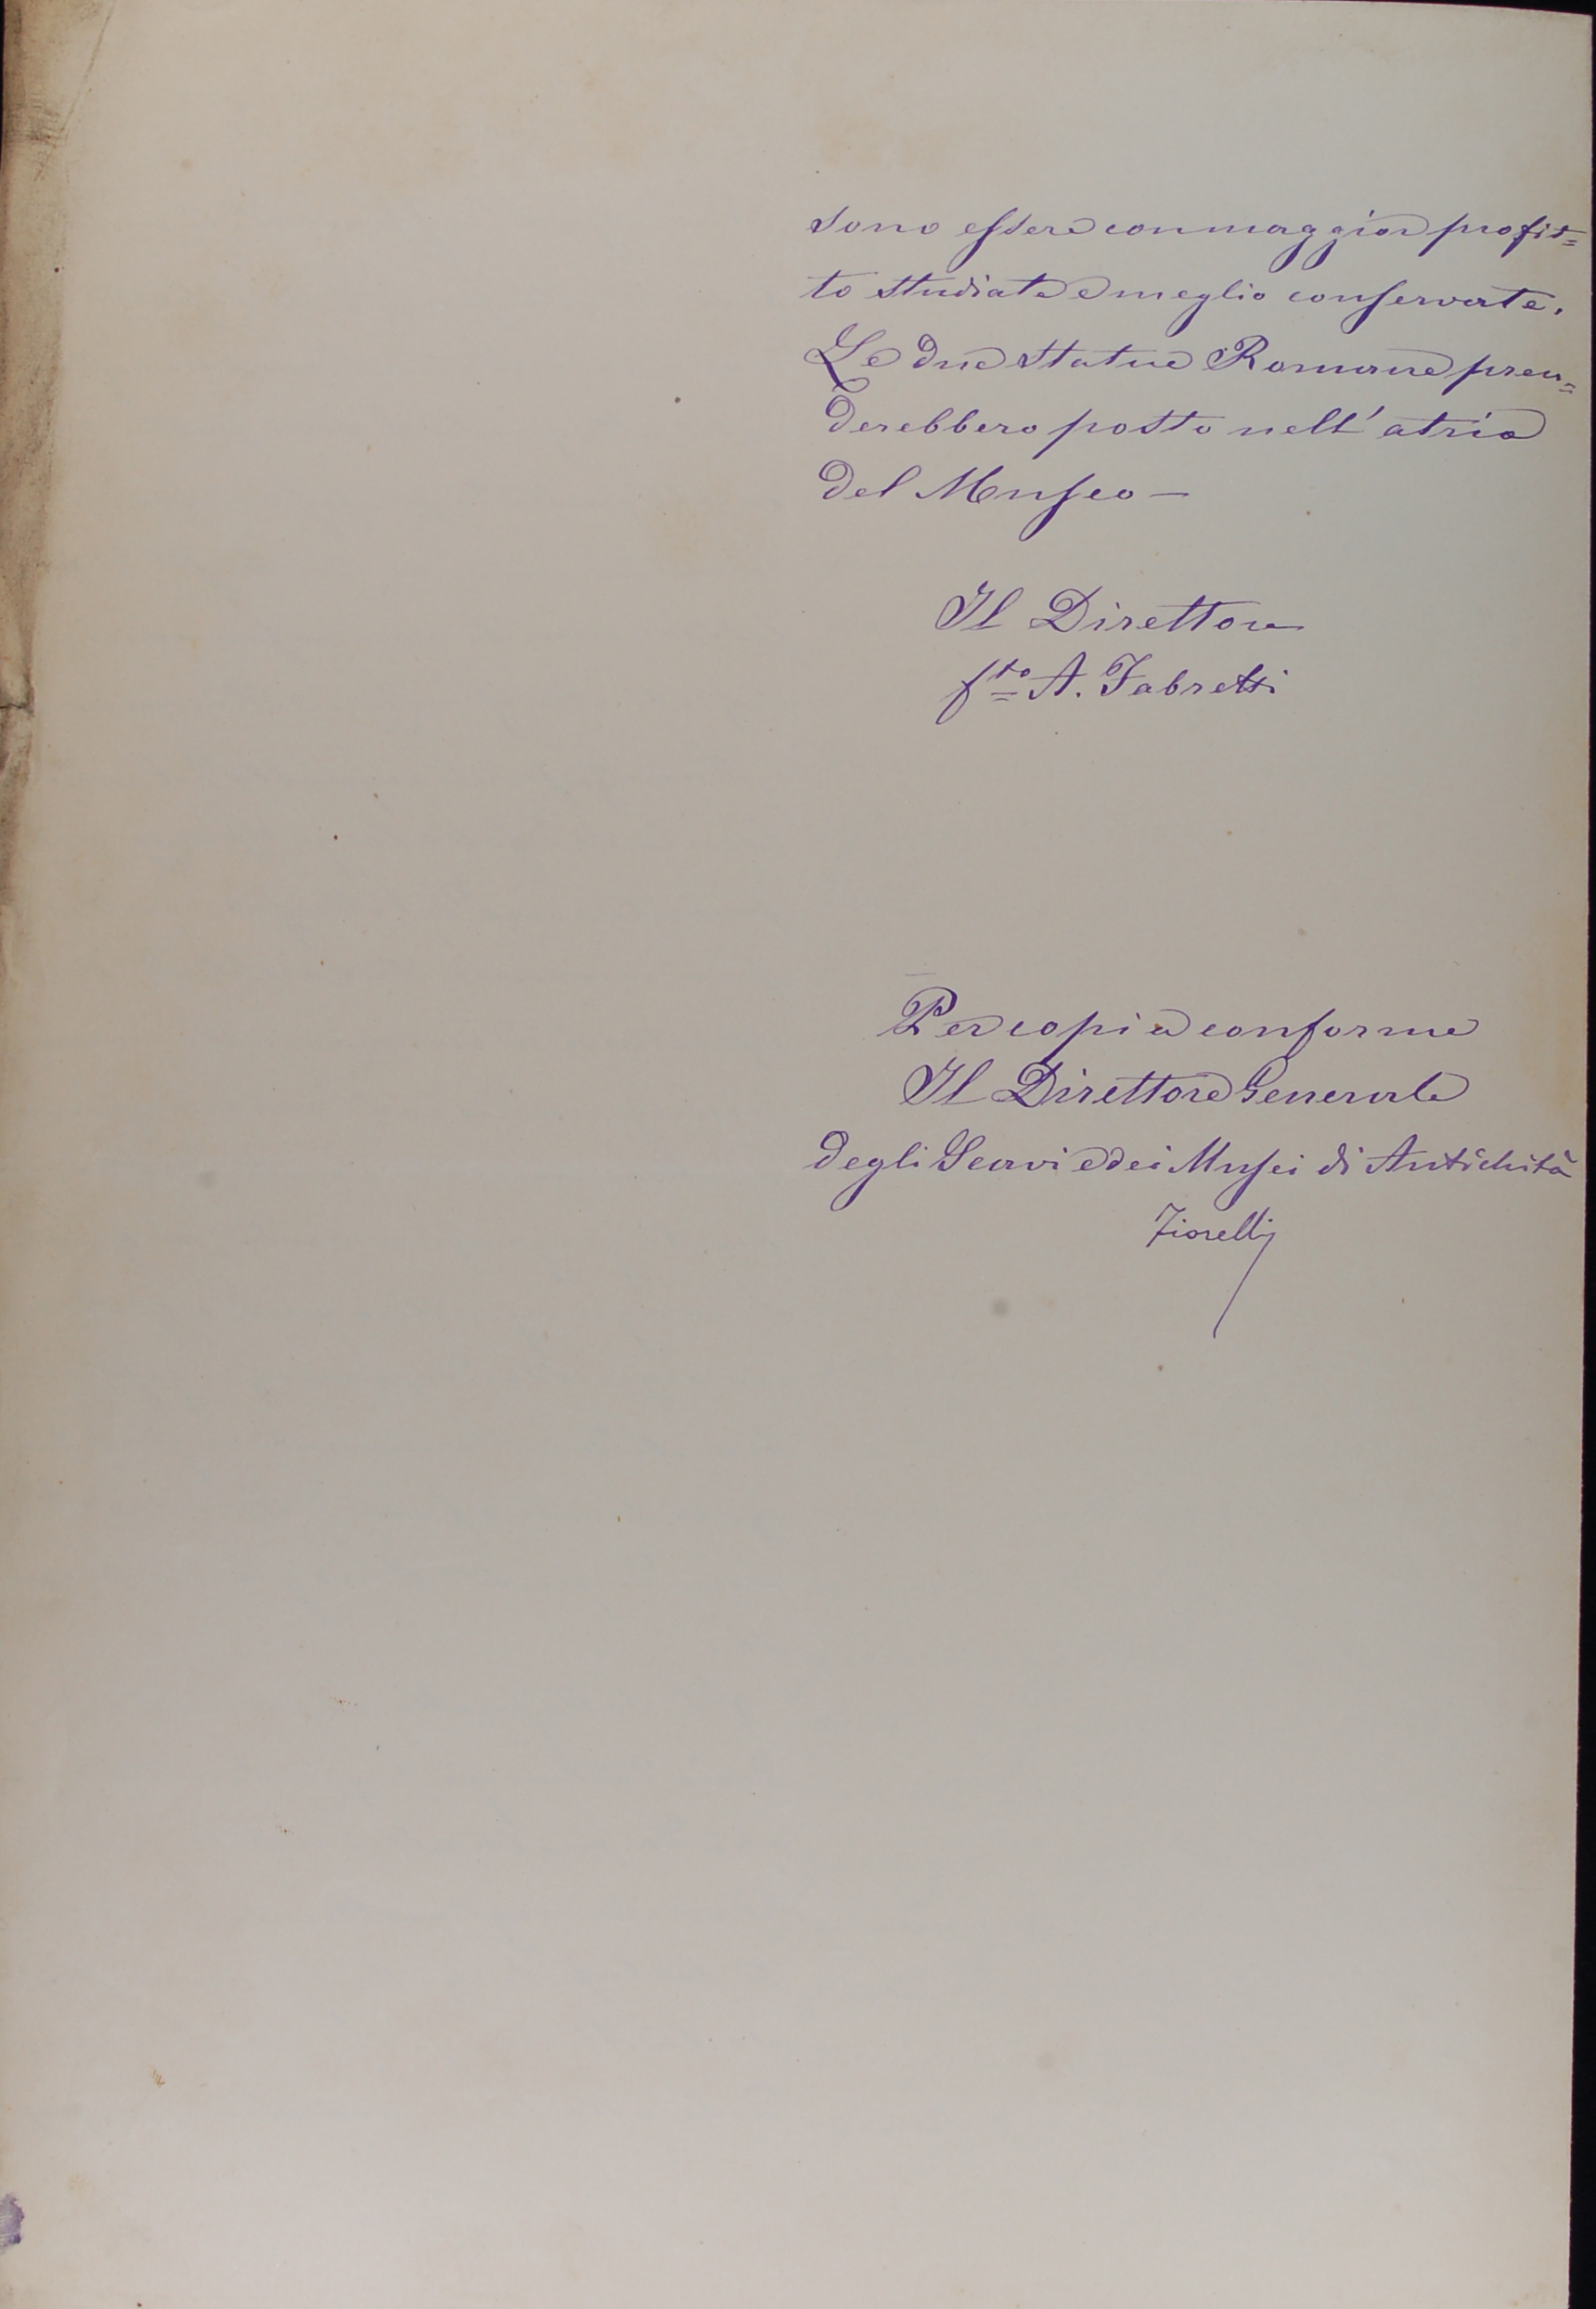 sono essere con maggior profit=
to studiate e meglio conservate.
Le due statue Romane pren=
derebbero posto nell' atrio
del Museo —
Il Direttore
fto A. Fabretti
Per copia conforme
Il Direttore Generale
degli Scavi e dei Musei di Antichità
Fiorelli